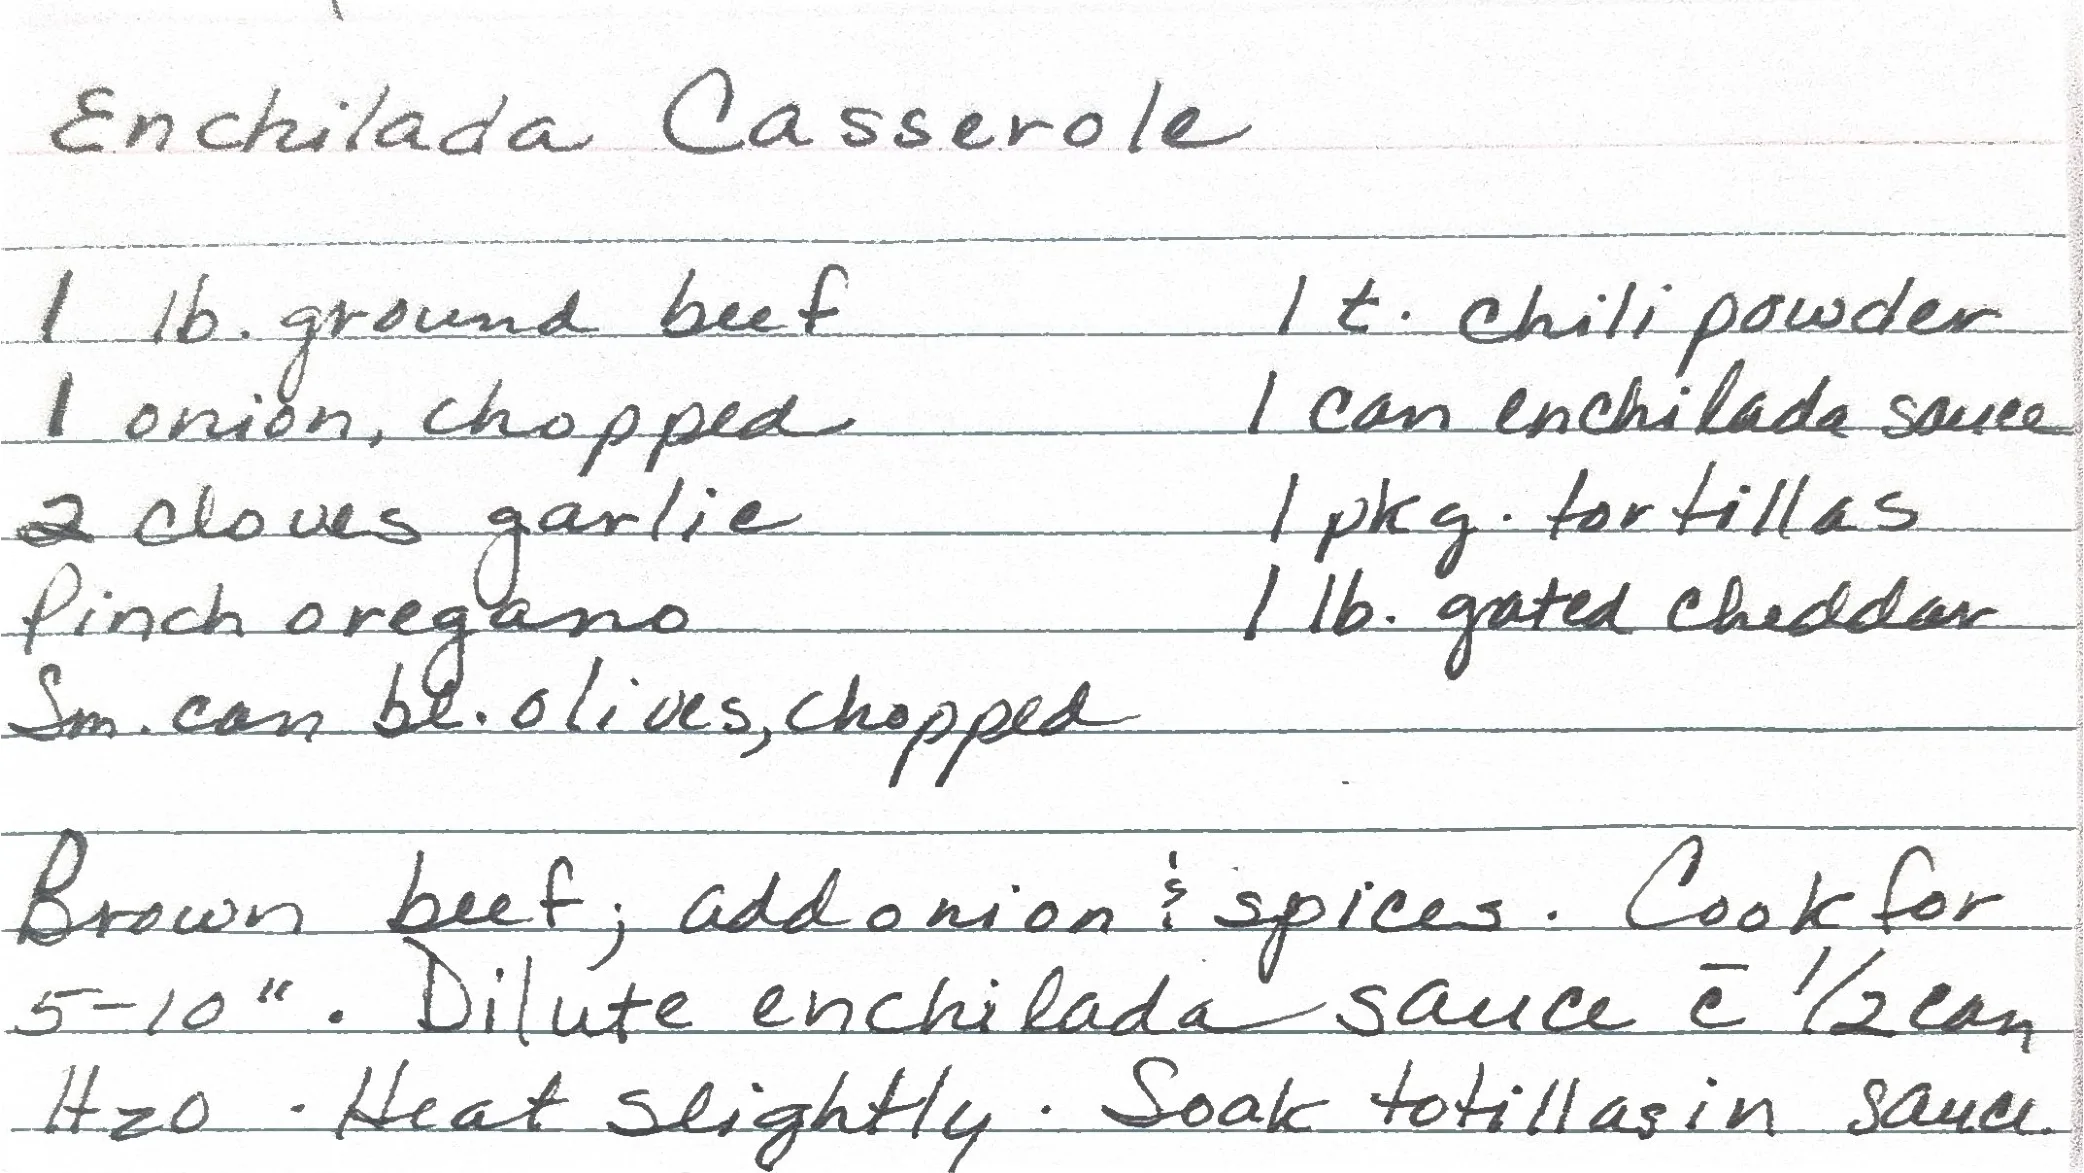 Enchilada Casserole
1 lb. ground beef
1 onion, chopped
2 cloves garlic
Pinch oregano
Sm. can bl. olives, chopped
1 t. chili powder
1 can enchilada sauce
1 pkg. tortillas
1 lb. grated cheddar
Brown beef; add onion & spices. Cook for
5-10". Dilute enchilada sauce c̄ 1/2 can
H2O. Heat slightly. Soak totillas in sauce.